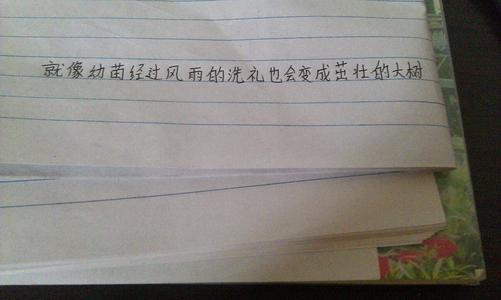 就像幼苗经过风雨的洗礼也会变成茁壮的大树